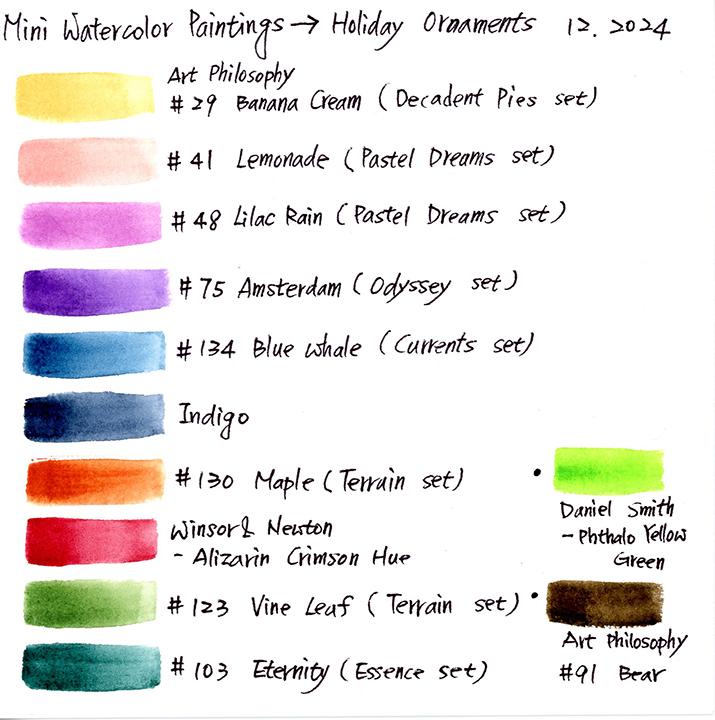 Mini Watercolor Paintings → Holiday Ornaments 12.2024
Art Philosophy
#29 Banana Cream (Decadent Pies set)
#41 Lemonade (Pastel Dreams set)
#48 Lilac Rain (Pastel Dreams set)
#75 Amsterdam (Odyssey set)
#134 Blue Whale (Currents set)
Indigo
#130 Maple (Terrain set)
Winsor & Newton
- Alizarin Crimson Hue
#123 Vine Leaf (Terrain set)
#103 Eternity (Essence set)
• Daniel Smith
- Phthalo Yellow
Green
• Art Philosophy
#91 Bear